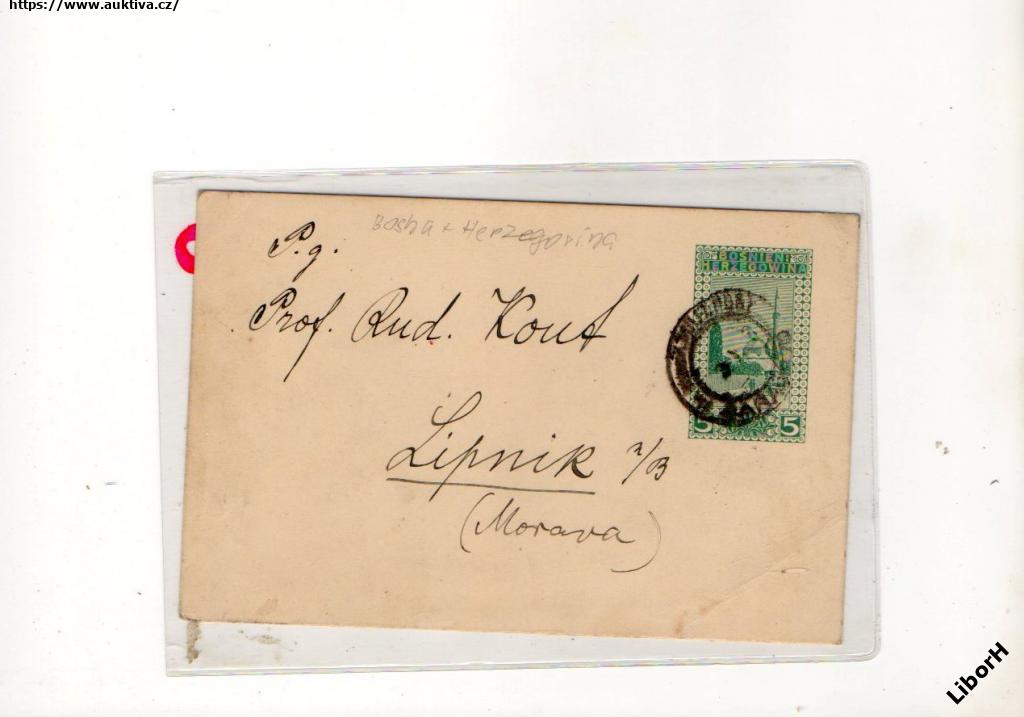 https://www.auktiva.cz/
Bosna + Herzegovina
P. g.
Prof. Rud. Kout
Lipnik n/B
(Morava)
BOSNIEN-
HERZEGOWINA
5 5
LiborH